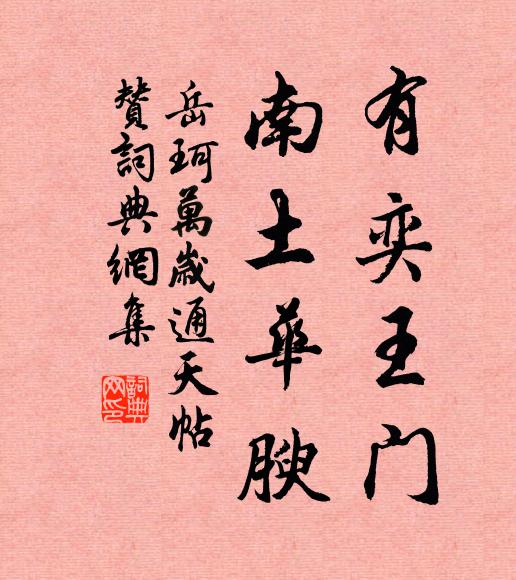 有奕王门
南土华腴
岳珂萬歲通天帖
賛詞典網集
詞典網印